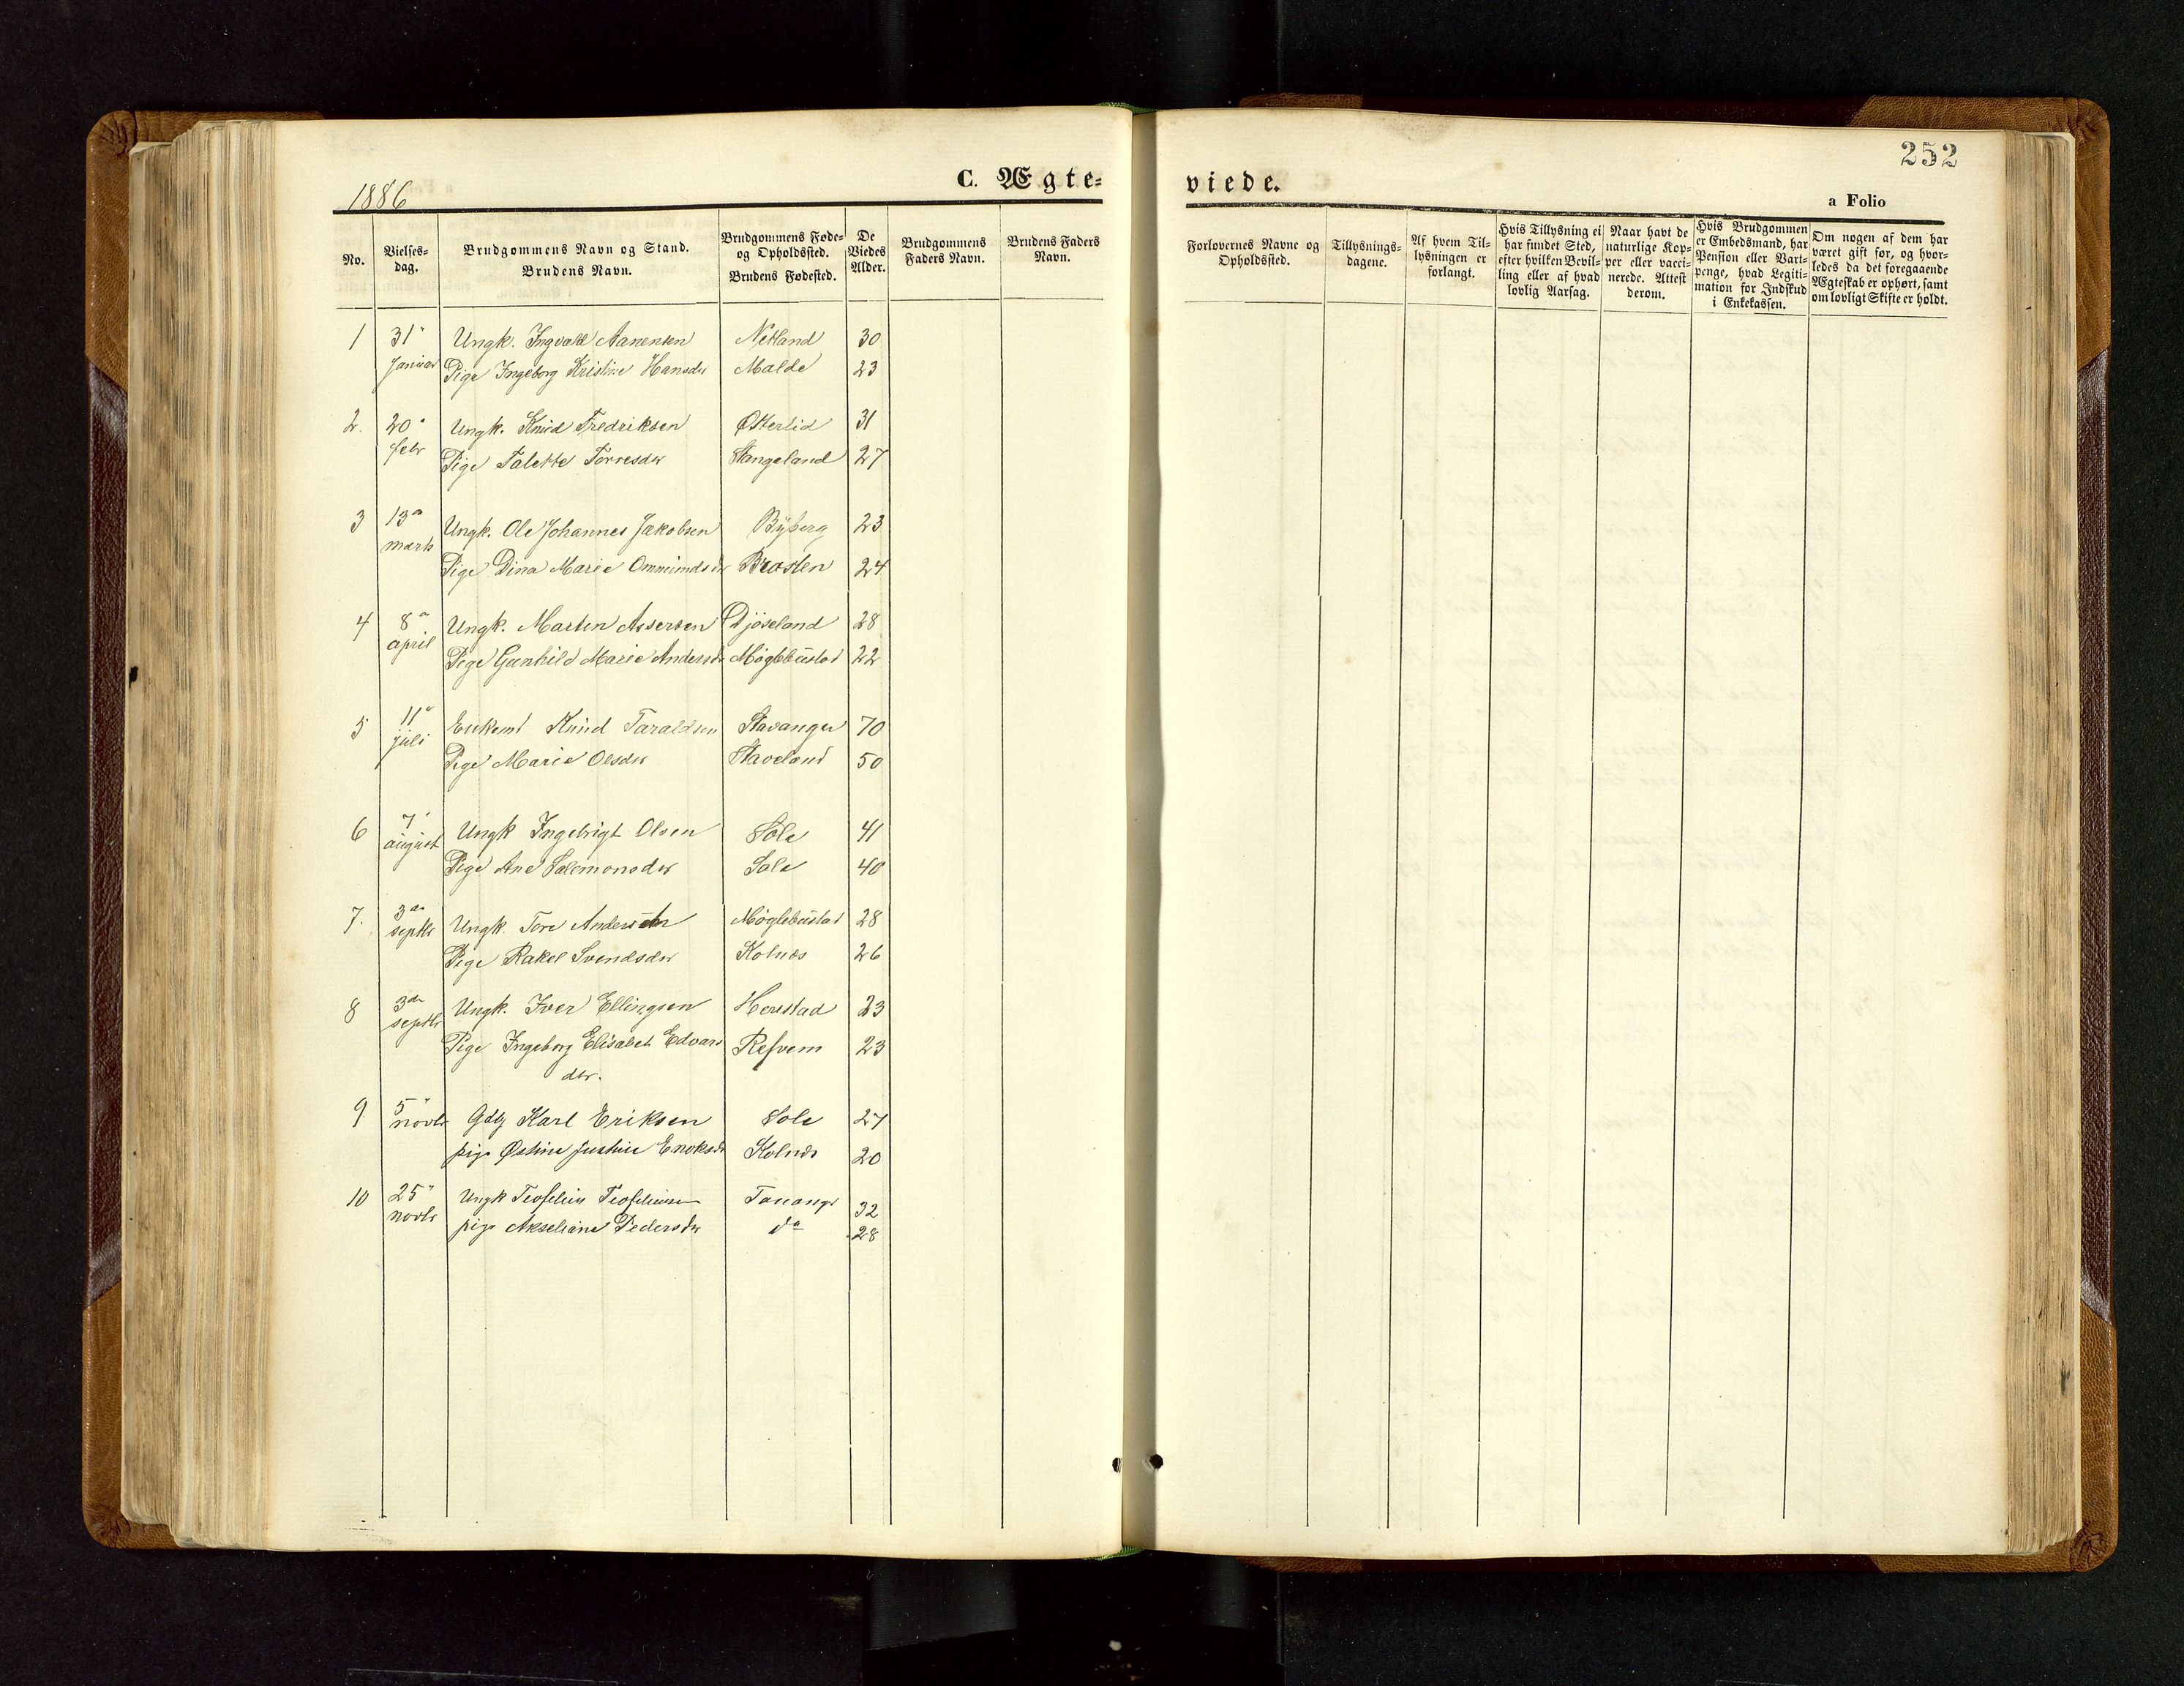 252
1886
C. Ægte-
viede.
a Folio
No.
Vielses-
dag.
Brudgommens Navn og Stand.
Brudens Navn.
Brudgommens Føde-
og Opholdssted.
Brudens Fødested.
De
Viedes
Alder.
Brudgommens
Faders Navn.
Brudens Faders
Navn.
Forlovernes Navne og
Opholdssted.
Tillysnings-
dagene.
Af hvem Til-
lysningen er
forlangt.
Hvis Tillysning ei
har fundet Sted,
efter hvilken Bevil-
ling eller af hvad
lovlig Aarsag.
Naar havt de
naturlige Kop-
per eller vacci-
nerede. Attest
derom.
Hvis Brudgommen
er Embedsmand, har
Pension eller Vart-
penge, hvad Legiti-
mation for Indskud
i Enkekassen.
Om nogen af dem har
været gift før, og hvor-
ledes da det foregaaende
Ægteskab er ophørt, samt
om lovligt Skifte er holdt.
1 31 Ungk. Ingvald Aanensen Netland 30
Januar Pige Ingeborg Kristine Hansdr Malde 23
2. 20 Ungk. Knud Fredriksen Østerlid 31
febr Pige Talette Torresdr Stangeland 27
3 13 Ungk. Ole Johannes Jakobsen Byberg 23
marts Pige Dina Marie Ommundsdr Brasten 24
4 8 Ungk. Martin Assersen Djøseland 28
april Pige Gunhild Marie Andersdr Møglebustad 22
5 11 Enkemd Knud Taraldsen Stavanger 70
juli Pige Marie Olsdr Haveland 50
6 7 Ungk Ingebrigt Olsen Sole 41
august Pige Ane Salemonsdr Sole 40
7. 3de Ungk. Tore Andersen Møglebustad 28
septbr Pige Rakel Svendsdr Kolnes 26
8 3de Ungk. Iver Ellingsen Harestad 23
septbr Pige Ingeborg Elisabet Edvards Refvem 23
dtr.
9 5 Gdbr Karl Eriksen Sole 27
novbr pige Østine Justine Enoksdr Kolnes 20
10 25 Ungk Teofelius Teofeliusen Tananger 32
novbr pige Akseliane Pedersdr do 28